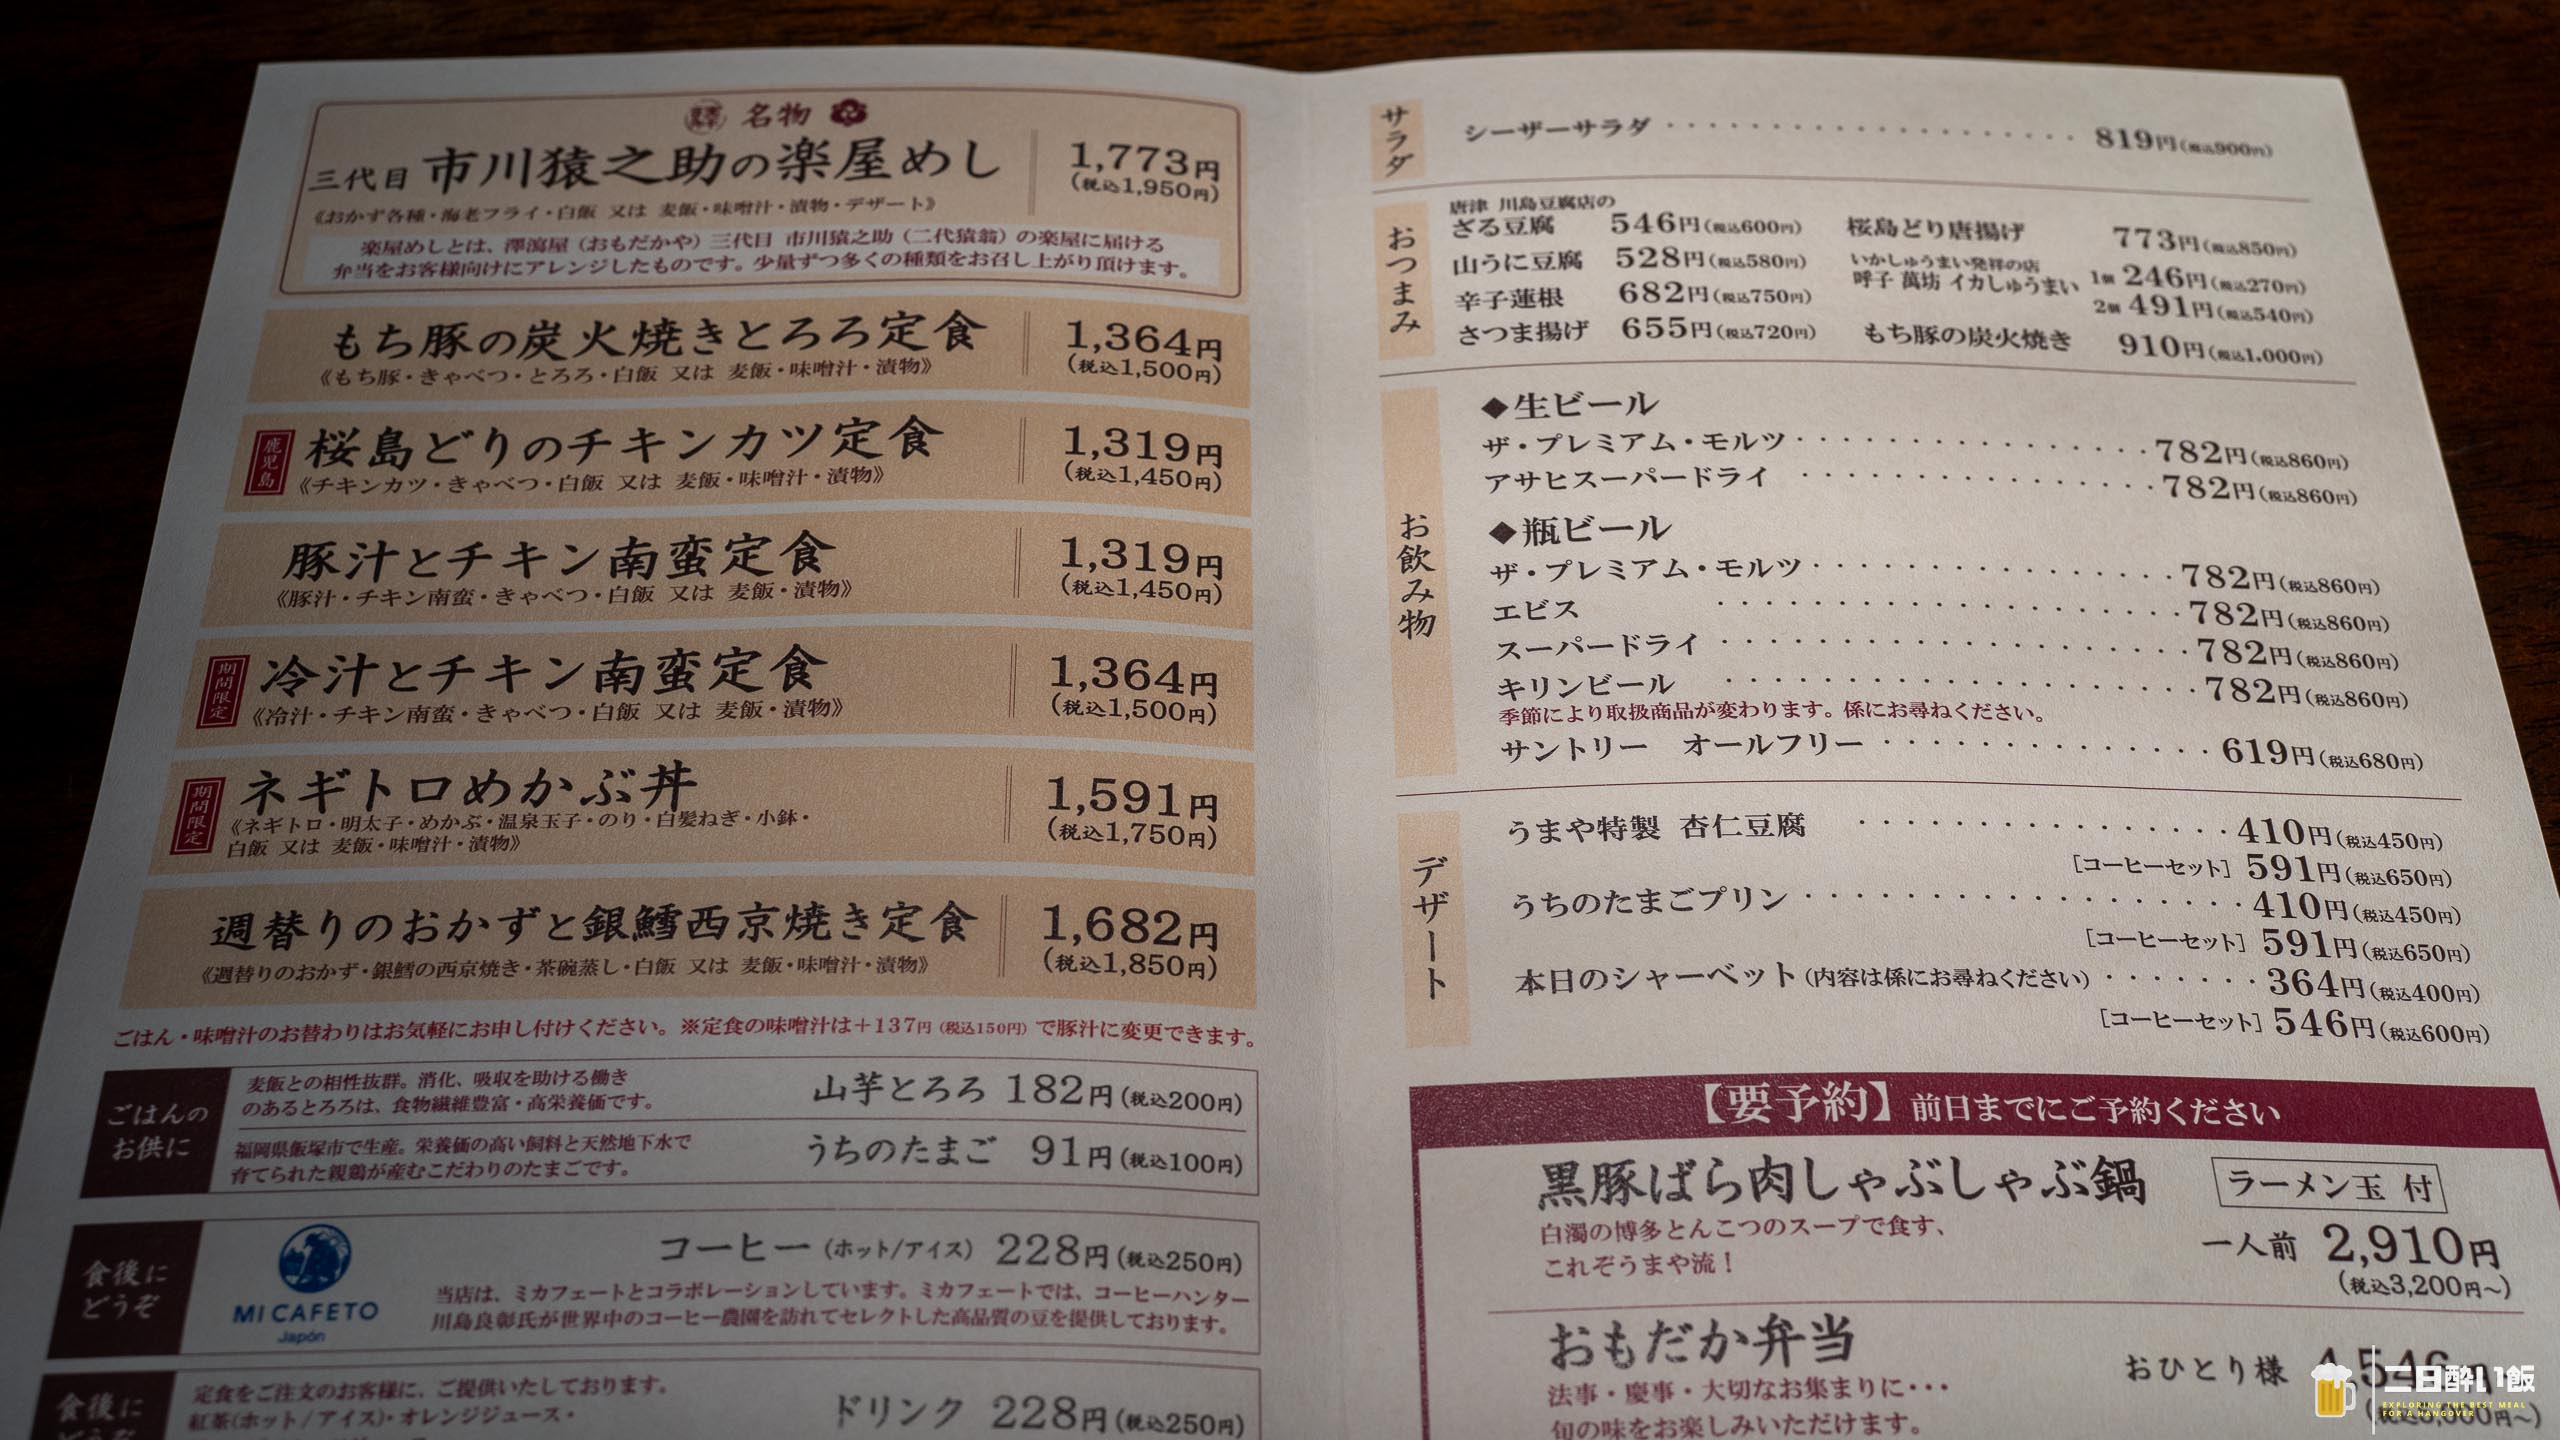 名物
三代目 市川猿之助の楽屋めし 1,773円
(税込1,950円)
《おかず各種・海老フライ・白飯 又は 麦飯・味噌汁・漬物・デザート》
楽屋めしとは、澤瀉屋（おもだかや）三代目 市川猿之助（二代猿翁）の楽屋に届ける
弁当をお客様向けにアレンジしたものです。少量ずつ多くの種類をお召し上がり頂けます。
もち豚の炭火焼きとろろ定食 1,364円
《もち豚・きゃべつ・とろろ・白飯 又は 麦飯・味噌汁・漬物》 (税込1,500円)
鹿児島
桜島どりのチキンカツ定食 1,319円
《チキンカツ・きゃべつ・白飯 又は 麦飯・味噌汁・漬物》 (税込1,450円)
豚汁とチキン南蛮定食 1,319円
《豚汁・チキン南蛮・きゃべつ・白飯 又は 麦飯・漬物》 (税込1,450円)
期間限定
冷汁とチキン南蛮定食 1,364円
《冷汁・チキン南蛮・きゃべつ・白飯 又は 麦飯・漬物》 (税込1,500円)
期間限定
ネギトロめかぶ丼 1,591円
《ネギトロ・明太子・めかぶ・温泉玉子・のり・白髪ねぎ・小鉢・ (税込1,750円)
白飯 又は 麦飯・味噌汁・漬物》
週替りのおかずと銀鱈西京焼き定食 1,682円
《週替りのおかず・銀鱈の西京焼き・茶碗蒸し・白飯 又は 麦飯・味噌汁・漬物》 (税込1,850円)
ごはん・味噌汁のお替わりはお気軽にお申し付けください。※定食の味噌汁は＋137円（税込150円）で豚汁に変更できます。
ごはんの
お供に
麦飯との相性抜群。消化、吸収を助ける働き
のあるとろろは、食物繊維豊富・高栄養価です。
山芋とろろ 182円(税込200円)
福岡県飯塚市で生産。栄養価の高い飼料と天然地下水で
育てられた親鶏が産むこだわりのたまごです。
うちのたまご 91円(税込100円)
食後に
どうぞ
MI CAFETO
Japón
コーヒー（ホット/アイス） 228円(税込250円)
当店は、ミカフェートとコラボレーションしています。ミカフェートでは、コーヒーハンター
川島良彰氏が世界中のコーヒー農園を訪れてセレクトした高品質の豆を提供しております。
食後に
どうぞ
定食をご注文のお客様に、ご提供いたしております。
紅茶(ホット/アイス)・オレンジジュース・
ドリンク 228円(税込250円)
サラダ
シーザーサラダ 819円(税込900円)
おつまみ
唐津 川島豆腐店の
ざる豆腐 546円(税込600円)
山うに豆腐 528円(税込580円)
辛子蓮根 682円(税込750円)
さつま揚げ 655円(税込720円)
桜島どり唐揚げ 773円(税込850円)
いかしゅうまい発祥の店
呼子 萬坊 イカしゅうまい 1個 246円(税込270円)
2個 491円(税込540円)
もち豚の炭火焼き 910円(税込1,000円)
お飲み物
◆生ビール
ザ・プレミアム・モルツ 782円(税込860円)
アサヒスーパードライ 782円(税込860円)
◆瓶ビール
ザ・プレミアム・モルツ 782円(税込860円)
エビス 782円(税込860円)
スーパードライ 782円(税込860円)
キリンビール 782円(税込860円)
季節により取扱商品が変わります。係にお尋ねください。
サントリー オールフリー 619円(税込680円)
デザート
うまや特製 杏仁豆腐 410円(税込450円)
［コーヒーセット］ 591円(税込650円)
うちのたまごプリン 410円(税込450円)
［コーヒーセット］ 591円(税込650円)
本日のシャーベット（内容は係にお尋ねください） 364円(税込400円)
［コーヒーセット］ 546円(税込600円)
【要予約】前日までにご予約ください
黒豚ばら肉しゃぶしゃぶ鍋 ラーメン玉 付
白濁の博多とんこつのスープで食す、
これぞうまや流！
一人前 2,910円
(税込3,200円～)
おもだか弁当
おひとり様 4,546円
法事・慶事・大切なお集まりに･･･
旬の味をお楽しみいただけます。
二日酔い飯
EXPLORING THE BEST MEAL
FOR A HANGOVER